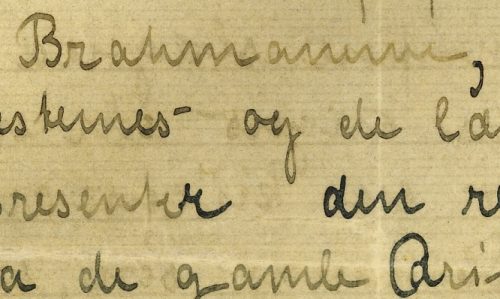 Brahmanerne,
esternes- og de læ
resenter den re
a de gamle Ari-